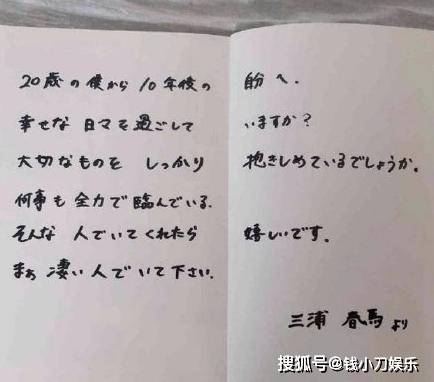 20歳の僕から 10年後の 自分へ.
幸せな 日々を過ごして いますか?
大切なものを しっかり 抱きしめているでしょうか.
何事も 全力で 臨んでいる.
そんな 人でいてくれたら 嬉しいです.
まぁ 凄い人でいて下さい.
三浦 春馬 より
搜狐号@钱小刀娱乐